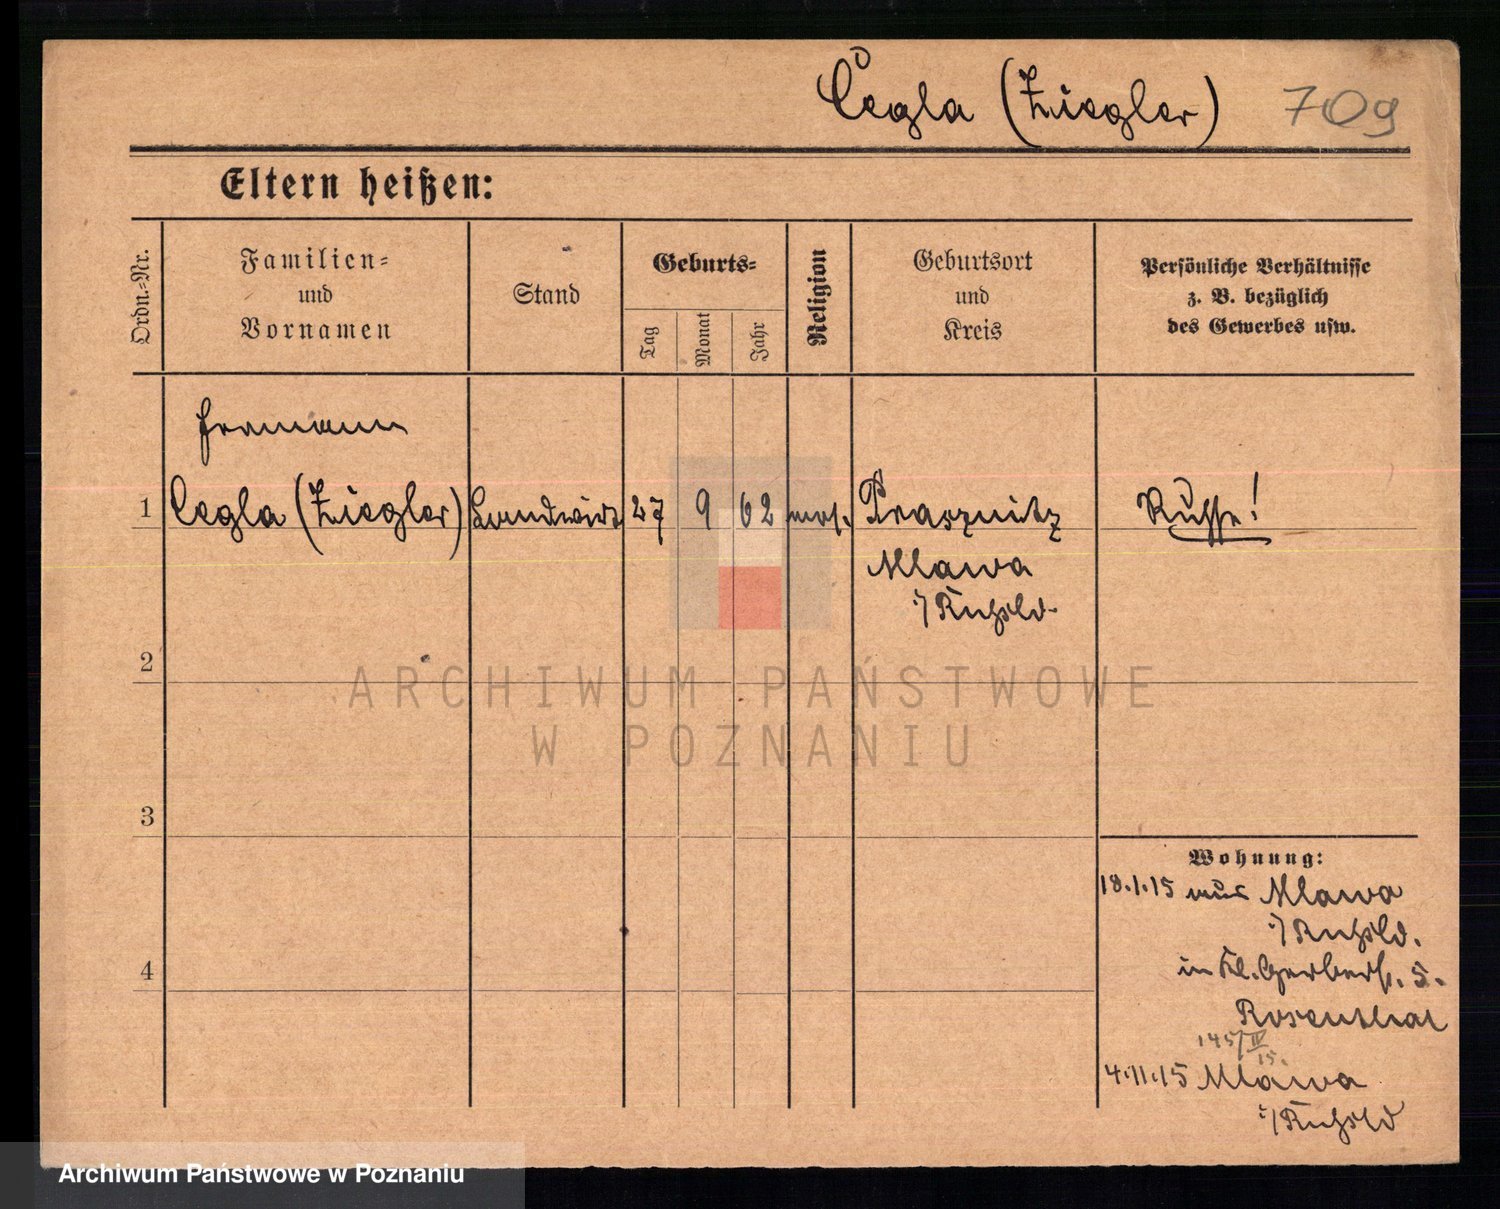 Cegla (Ziegler) 709
Eltern heißen:
Ordn.-Nr.
Familien-
und
Vornamen
Stand
Geburts-
Tag
Monat
Jahr
Religion
Geburtsort
und
Kreis
Persönliche Verhältnisse
z. B. bezüglich
des Gewerbes usw.
Hermann
1 Cegla (Ziegler) Landwirt 27 9 62 mos. Prasznitz Russe!
Mlawa
i/Rußld.
2
ARCHIWUM PAŃSTWOWE
W POZNANIU
3
Wohnung:
18.1.15 aus Mlawa
i/Rußld.
in Kl. Gerberst. 5.
4
Rosenthal
145/IV
15.
4.11.15 Mlawa
i/Rußld
Archiwum Państwowe w Poznaniu